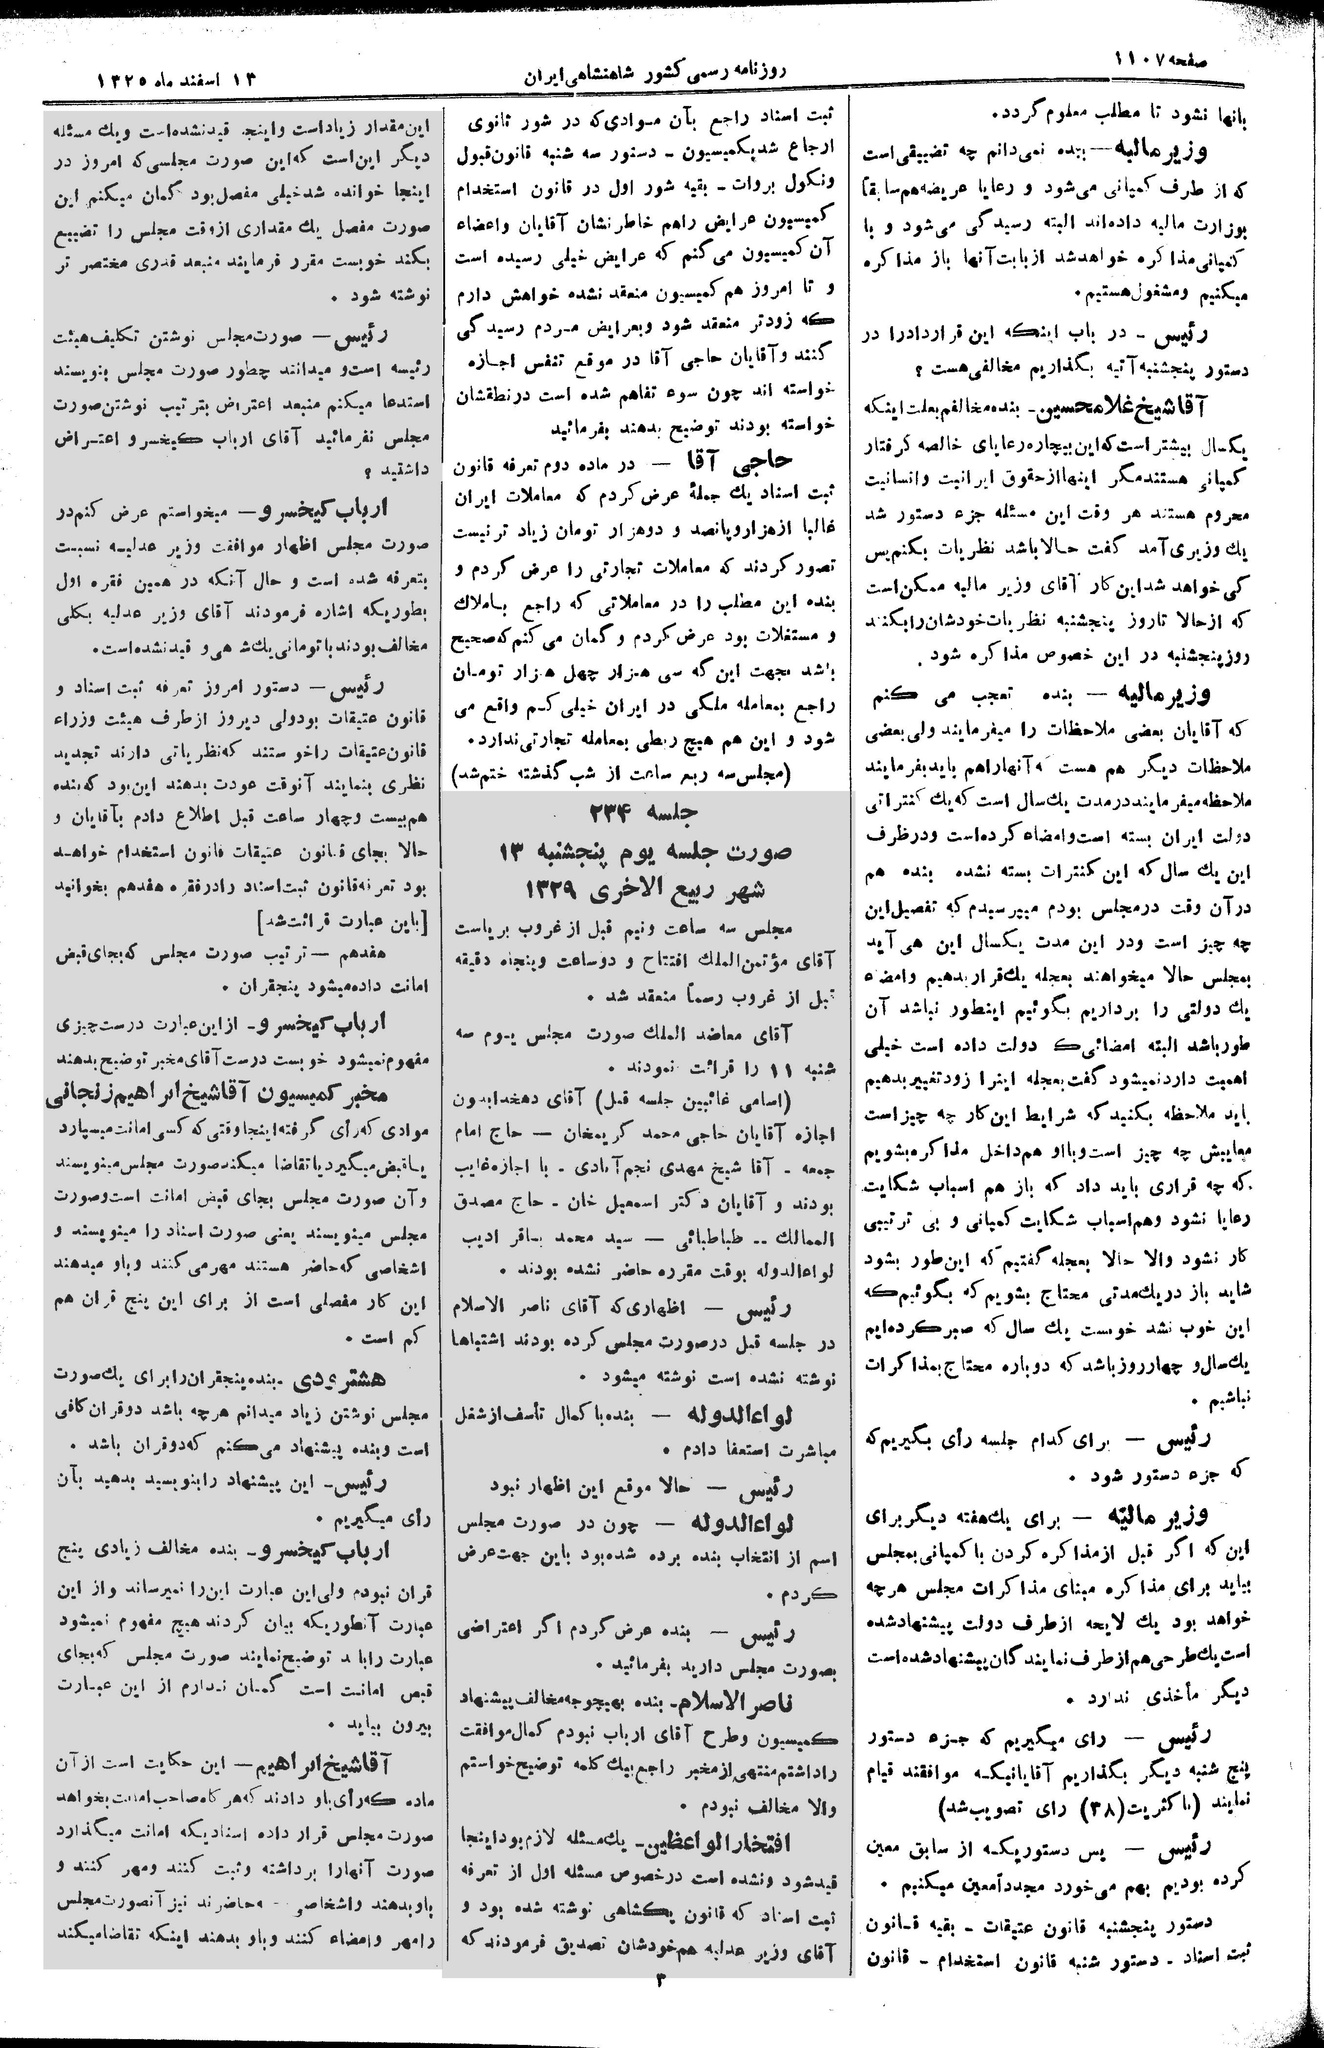 صفحه ۱۱۰۷
روزنامه رسمی کشور شاهنشاهی ایران
۱۳ اسفند ماه ۱۳۲۵
بانها نشود تا مطلب معلوم گردد.
وزیر مالیه — بنده نمی‌دانم چه تضییقی است
که از طرف کمپانی می‌شود و رعایا عریضه هم سابقاً
بوزارت مالیه داده‌اند البته رسیدگی می‌شود و با
کمپانی مذاکره خواهد شد از بابت آنها باز مذاکره
میکنیم و مشغول هستیم.
رئیس - در باب اینکه این قرارداد را در
دستور پنجشنبه آتیه بگذاریم مخالفی هست ؟
آقا شیخ غلامحسین - بنده مخالفم بعلت اینکه
یکسال بیشتر است که این بیچاره رعایای خالصه گرفتار
کمپانی هستند مگر اینها از حقوق ایرانیت و انسانیت
محروم هستند هر وقت این مسئله جزء دستور شد
یك وزیری آمد گفت حالا باشد نظریات بکنم پس
کی خواهد شد این کار آقای وزیر مالیه ممکن است
که از حالا تا روز پنجشنبه نظریات خودشان را بکنند
روز پنجشنبه در این خصوص مذاکره شود .
وزیر مالیه — بنده تعجب می کنم
که آقایان بعضی ملاحظات را میفرمایند ولی بعضی
ملاحظات دیگر هم هست که آنها را هم باید بفرمایند
ملاحظه میفرمایند در مدت یك سال است که یك کنتراتی
دولت ایران بسته است و امضاء کرده است و در ظرف
این یك سال که این کنترات بسته نشده بنده هم
در آن وقت در مجلس بودم میپرسیدم که تفصیل این
چه چیز است و در این مدت یکسال این هی آید
بمجلس حالا میخواهند بعجله یك قرار بدهیم و امضاء
یك دولتی را برداریم بگوئیم اینطور نباشد آن
طور باشد البته امضائی که دولت داده است خیلی
اهمیت دارد نمیشود گفت بعجله اینرا زود تغییر بدهیم
باید ملاحظه بکنید که شرایط این کار چه چیز است
معایبش چه چیز است و با او هم داخل مذاکره بشویم
که چه قراری باید داد که باز هم اسباب شکایت
رعایا نشود و هم اسباب شکایت کمپانی و بی ترتیبی
کار نشود والا حالا بعجله گفتیم که این طور بشود
شاید باز در یك مدتی محتاج بشویم که بگوئیم که
این خوب نشد خوبست یك سال که صبر کرده‌ایم
یك سال و چهار روز باشد که دوباره محتاج بمذاکرات
نباشیم .
رئیس — برای کدام جلسه رأی بگیریم که
که جزء دستور شود .
وزیر مالیّه — برای یك هفته دیگر برای
این که اگر قبل از مذاکره کردن با کمپانی بمجلس
بیاید برای مذاکره مبنای مذاکرات مجلس هرچه
خواهد بود یك لایحه از طرف دولت پیشنهاد شده
است یك طرحی هم از طرف نمایندگان پیشنهاد شده است
دیگر مأخذی ندارد .
رئیس — رای میگیریم که جزء دستور
پنج شنبه دیگر بگذاریم آقایانیکه موافقند قیام
نمایند (باکثریت (۳۸) رای تصویب شد)
رئیس — پس دستوریکه از سابق معین
کرده بودیم بهم می‌خورد مجدداً معین میکنیم .
دستور پنجشنبه قانون عتیقات - بقیه قانون
ثبت اسناد - دستور شنبه قانون استخدام - قانون
ثبت اسناد راجع بآن موادی که در شور ثانوی
ارجاع شد بکمیسیون - دستور سه شنبه قانون قبول
و نکول بروات - بقیه شور اول در قانون استخدام
کمیسیون عرایض را هم خاطر نشان آقایان و اعضاء
آن کمیسیون می‌گنم که عرایض خیلی رسیده است
و تا امروز هم کمیسیون منعقد نشده خواهش دارم
که زودتر منعقد شود و بعرایض مردم رسیدگی
کنند و آقایان حاجی آقا در موقع تنفس اجازه
خواسته اند چون سوء تفاهم شده است در نطقشان
خواسته بودند توضیح بدهند بفرمائید
حاجی آقا — در ماده دوم تعرفه قانون
ثبت اسناد یك جملهٔ عرض کردم که معاملات ایران
غالبا از هزار و پانصد و دو هزار تومان زیاد تر نیست
تصور کردند که معاملات تجارتی را عرض کردم و
بنده این مطلب را در معاملاتی که راجع باملاك
و مستغلات بود عرض کردم و گمان می کنم که صحیح
باشد بجهت این که سی هزار چهل هزار تومان
راجع بمعامله ملکی در ایران خیلی کم واقع می
شود و این هم هیچ ربطی بمعامله تجارتی ندارد.
(مجلس سه ربع ساعت از شب گذشته ختم شد)
جلسه ۲۳۴
صورت جلسه یوم پنجشنبه ۱۳
شهر ربیع الاخری ۱۳۲۹
مجلس سه ساعت و نیم قبل از غروب بریاست
آقای مؤتمن الملك افتتاح و دو ساعت و پنجاه دقیقه
قبل از غروب رسماً منعقد شد .
آقای معاضد الملك صورت مجلس یوم سه
شنبه ۱۱ را قرائت نمودند .
(اسامی غائبین جلسه قبل) آقای دهخدا بدون
اجازه آقایان حاجی محمد کریمخان — حاج امام
جمعه - آقا شیخ مهدی نجم آبادی - با اجازه غایب
بودند و آقایان دکتر اسمعیل خان - حاج مصدق
الممالك - طباطبائی — سید محمد باقر ادیب
لواء الدوله بوقت مقرره حاضر نشده بودند .
رئیس — اظهاری که آقای ناصر الاسلام
در جلسه قبل در صورت مجلس کرده بودند اشتباها
نوشته نشده است نوشته میشود .
لواء الدوله — بنده با کمال تأسف از شغل
مباشرت استعفا دادم .
رئیس — حالا موقع این اظهار نبود
لواء الدوله — چون در صورت مجلس
اسم از انتخاب بنده برده شده بود باین جهت عرض
کردم .
رئیس — بنده عرض کردم اگر اعتراضی
بصورت مجلس دارید بفرمائید .
ناصر الاسلام - بنده بهیچوجه مخالف پیشنهاد
کمیسیون و طرح آقای ارباب نبودم کمال موافقت
را داشتم منتهی از مخبر راجع بیك کلمه توضیح خواستم
والا مخالف نبودم .
افتخار الواعظین - یك مسئله لازم بود اینجا
قید شود و نشده است در خصوص مسئله اول از تعرفه
ثبت اسناد که قانون یکشاهی نوشته شده بود و
آقای وزیر عدلیه هم خودشان تصدیق فرمودند که
این مقدار زیاد است و اینجا قید نشده است و یك مسئله
دیگر این است که این صورت مجلسی که امروز در
اینجا خوانده شد خیلی مفصل بود گمان میکنم این
صورت مفصل یك مقداری از وقت مجلس را تضییع
بکند خوبست مقرر فرمایند منبعد قدری مختصر تر
نوشته شود .
رئیس — صورت مجلس نوشتن تکلیف هیئت
رئیسه است و میدانند چطور صورت مجلس بنویسند
استدعا میکنم منبعد اعتراض بترتیب نوشتن صورت
مجلس نفرمائید آقای ارباب کیخسرو اعتراض
داشتید ؟
ارباب کیخسرو — میخواستم عرض کنم در
صورت مجلس اظهار موافقت وزیر عدلیه نسبت
بتعرفه شده است و حال آنکه در همین فقره اول
بطوریکه اشاره فرمودند آقای وزیر عدلیه بکلی
مخالف بودند با تومانی یك شاهی و قید نشده است.
رئیس — دستور امروز تعرفه ثبت اسناد و
قانون عتیقات بود ولی دیروز از طرف هیئت وزراء
قانون عتیقات را خواستند که نظریاتی دارند تجدید
نظری بنمایند آنوقت عودت بدهند این بود که بنده
هم بیست و چهار ساعت قبل اطلاع دادم بآقایان و
حالا بجای قانون عتیقات قانون استخدام خواهد
بود تعرفه قانون ثبت اسناد را در فقره هفدهم بخوانید
[باین عبارت قرائت شد]
هفدهم — ترتیب صورت مجلس که بجای قبض
امانت داده میشود پنجقران .
ارباب کیخسرو - از این عبارت درست چیزی
مفهوم نمیشود خوبست درست آقای مخبر توضیح بدهند
مخبر کمیسیون آقا شیخ ابراهیم زنجانی
موادی که رأی گرفته اینجا وقتی که کسی امانت میسپارد
یا قبض میگیرد یا تقاضا میکند صورت مجلس مینویسند
و آن صورت مجلس بجای قبض امانت است و صورت
مجلس مینویسند یعنی صورت اسناد را مینویسند و
اشخاصی که حاضر هستند مهر می کنند و باو میدهند
این کار مفصلی است از برای این پنج قران هم
کم است .
هشترودی - بنده پنجقران را برای یك صورت
مجلس نوشتن زیاد میدانم هرچه باشد دو قران کافی
است و بنده پیشنهاد می‌کنم که دو قران باشد .
رئیس - این پیشنهاد را بنویسید بدهید بآن
رأی میگیریم .
ارباب کیخسرو - بنده مخالف زیادی پنج
قران نبودم ولی این عبارت این را نمیرساند و از این
عبارت آنطوریکه بیان کردند هیچ مفهوم نمیشود
عبارت را باید توضیح نمایند صورت مجلس که بجای
قبض امانت است گمان ندارم از این عبارت
بیرون بیاید .
آقا شیخ ابراهیم — این حکایت است از آن
ماده که رأی باو دادند که هر گاه صاحب امانت بخواهد
صورت مجلس قرار داده اسنادیکه امانت میگذارد
صورت آنها را برداشته و ثبت کنند و مهر کنند و
باو بدهند و اشخاصی که حاضرند نیز آنصورت مجلس
را مهر و امضاء کنند و باو بدهند اینکه تقاضا میکند
۳